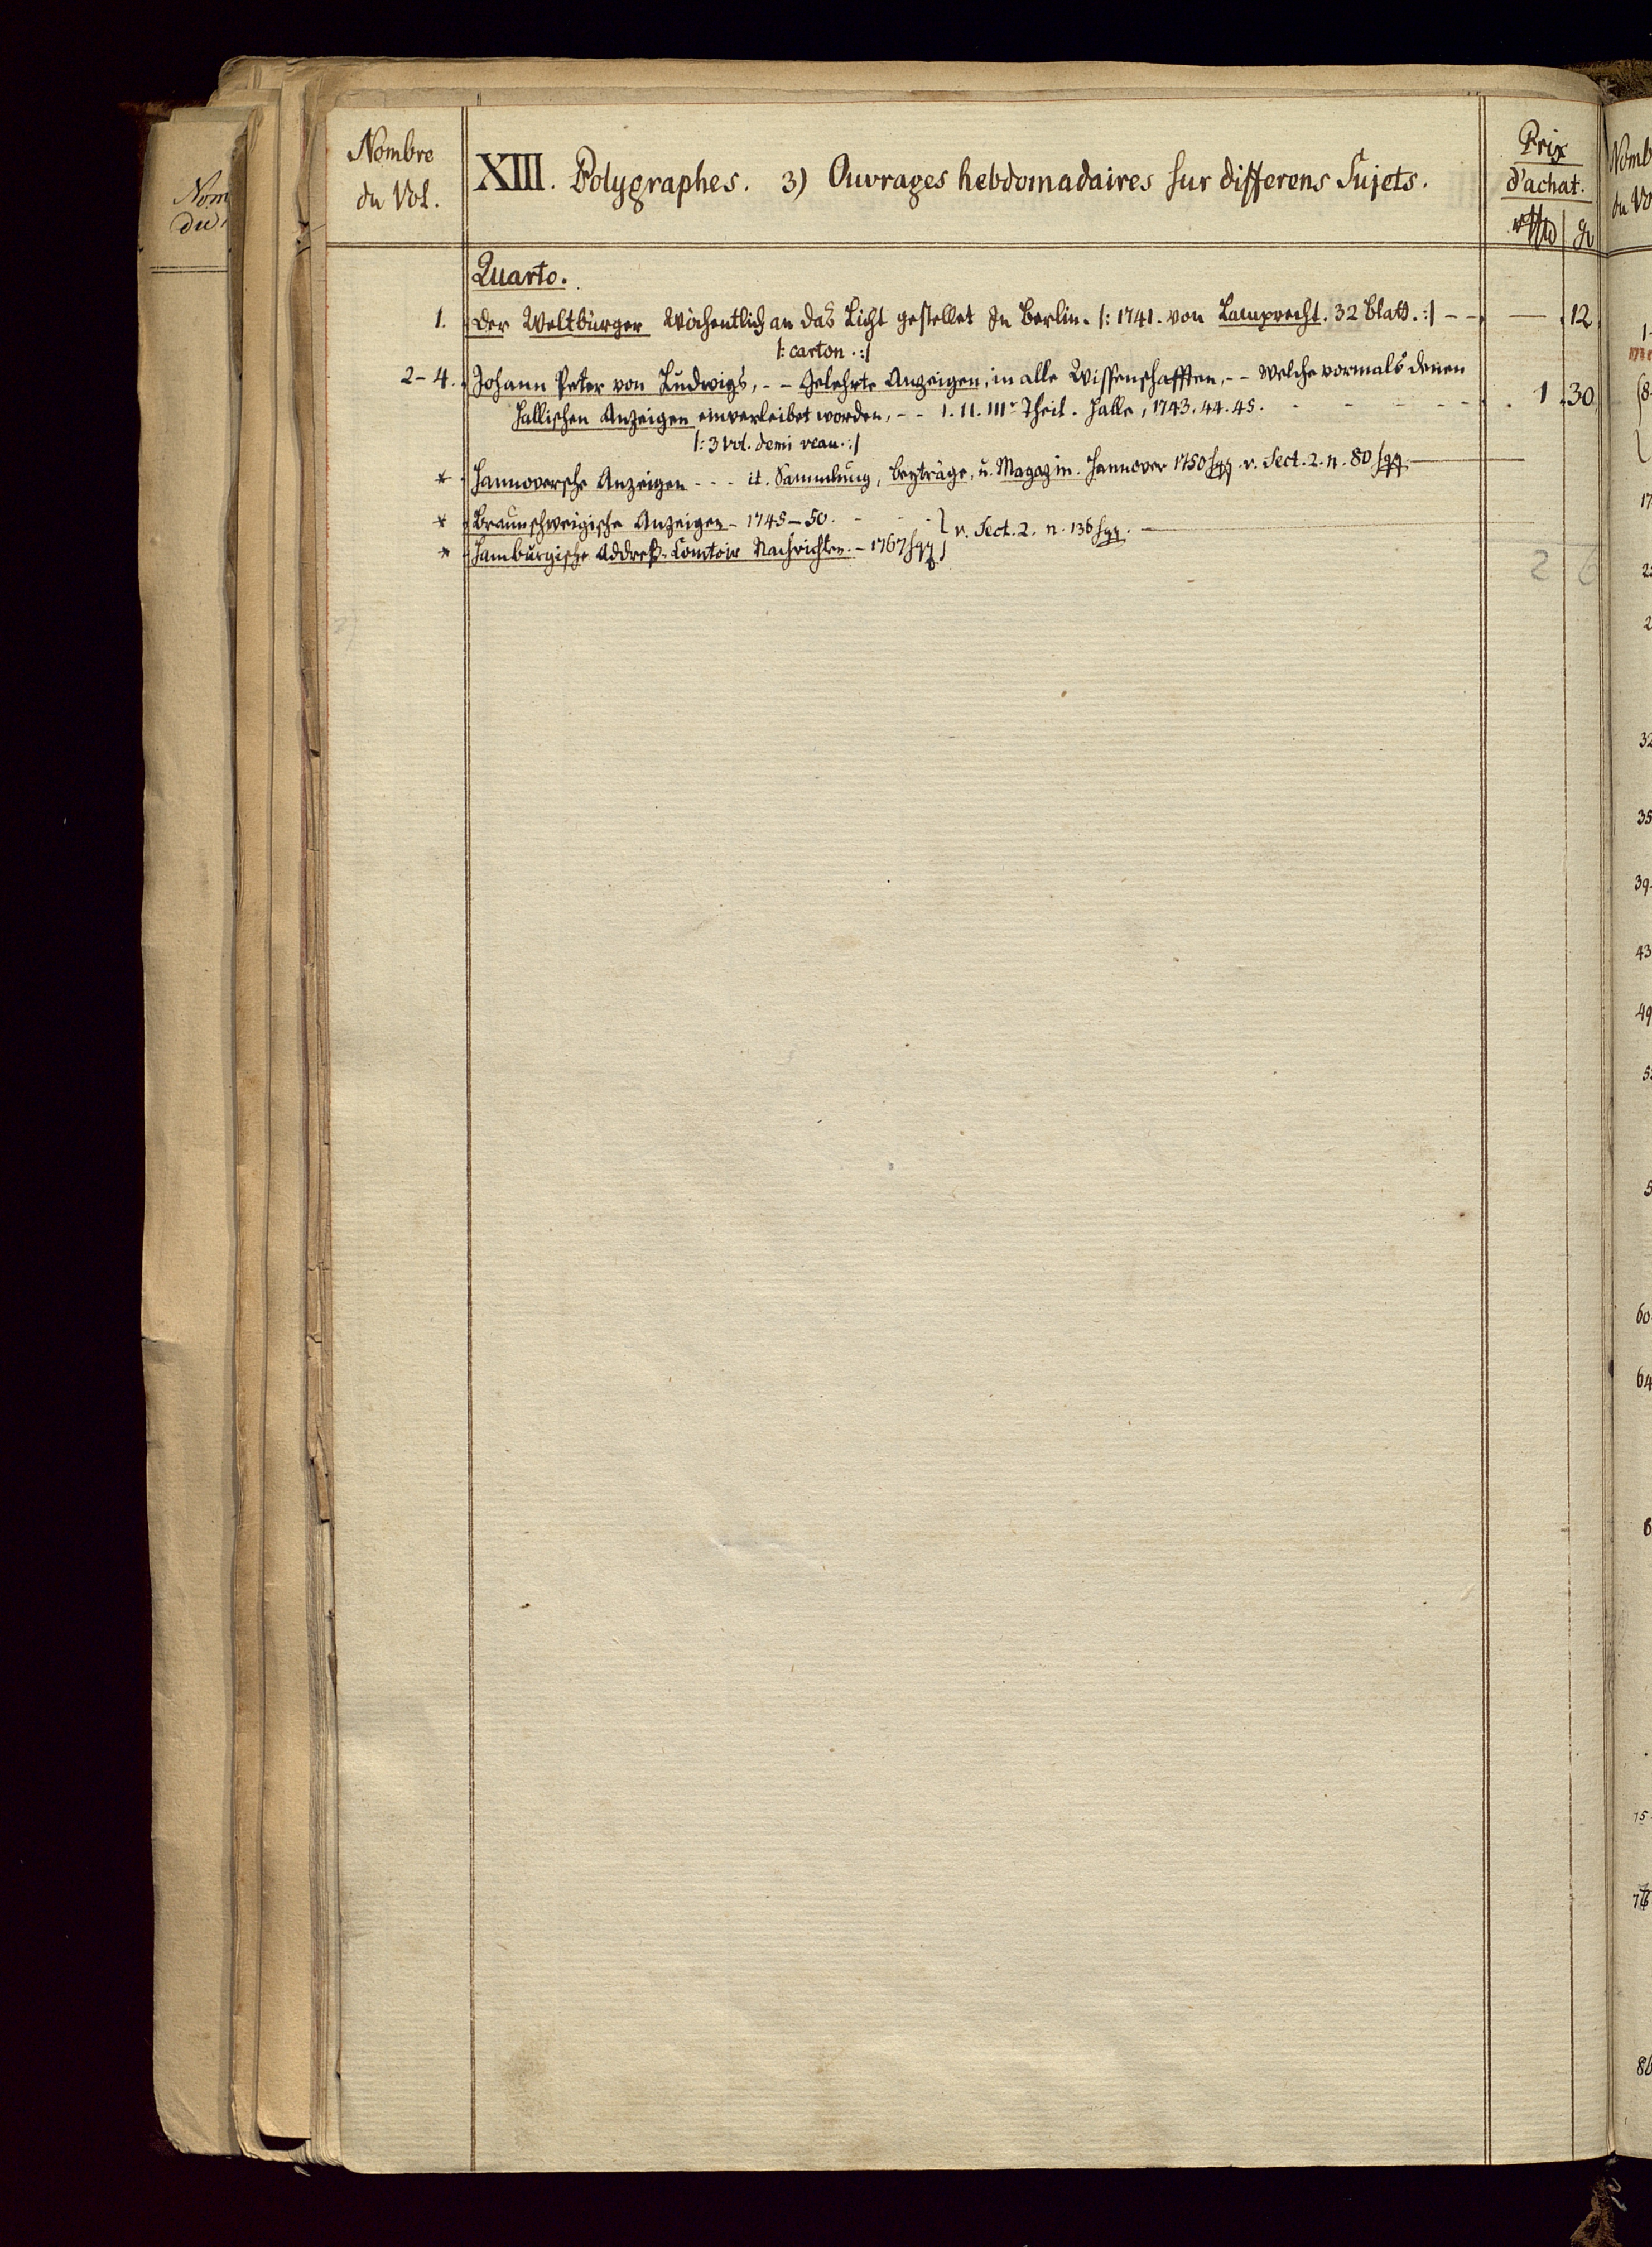 Nombre
du Vol.
XIII. Polygraphes. 3) Ouvrages hebdomadaires sur differens Sujets.
Prix
d'achat.
Quarto.
1. Der Weltbürger wöchentlich an das Licht gestellet In Berlin. /: 1741. von Lamprecht. 32 Blatt. :/ - - — 12
/: carton. :/
2-4. Johann Peter von Ludwigs, - - Gelehrte Anzeigen, in alle Wissenschafften, - - welche vormals denen
Hallischen Anzeigen einverleibet worden, - - I. II. IIIr Theil. Halle, 1743. 44. 45. - - - - - 1 30
/: 3 Vol. demi veau. :/
* Hannoversche Anzeigen - - - it. Sammlung, Beyträge, u. Magazin. Hannover 1750 sqq. v. Sect. 2. n. 80 sqq. —
* Braunschweigische Anzeigen - 1745-50. - - - } v. Sect. 2. n. 136 sqq. —
* Hamburgische Addreß-Comtoir Nachrichten. - 1767 sqq }
2 6